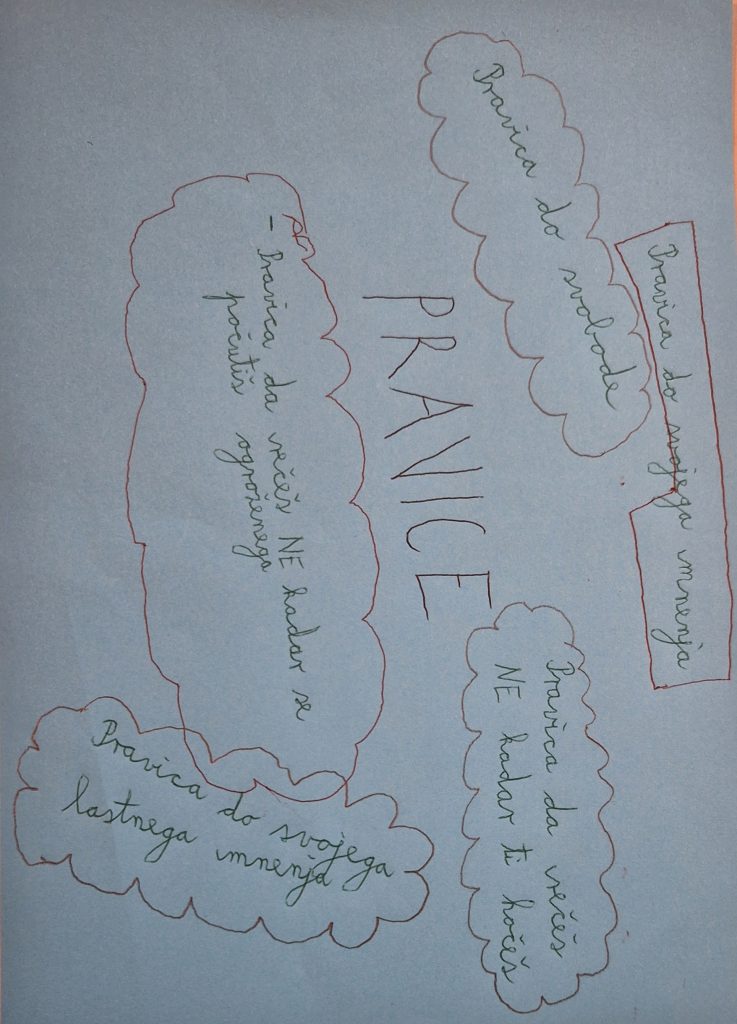 Pravica do svojega mnenja
Pravica do svobode
PRAVICE
Pravica da rečeš
NE kadar ti hočeš
- Pravica da rečeš NE kadar se
počutiš ogroženega
Pravica do svojega
lastnega mnenja